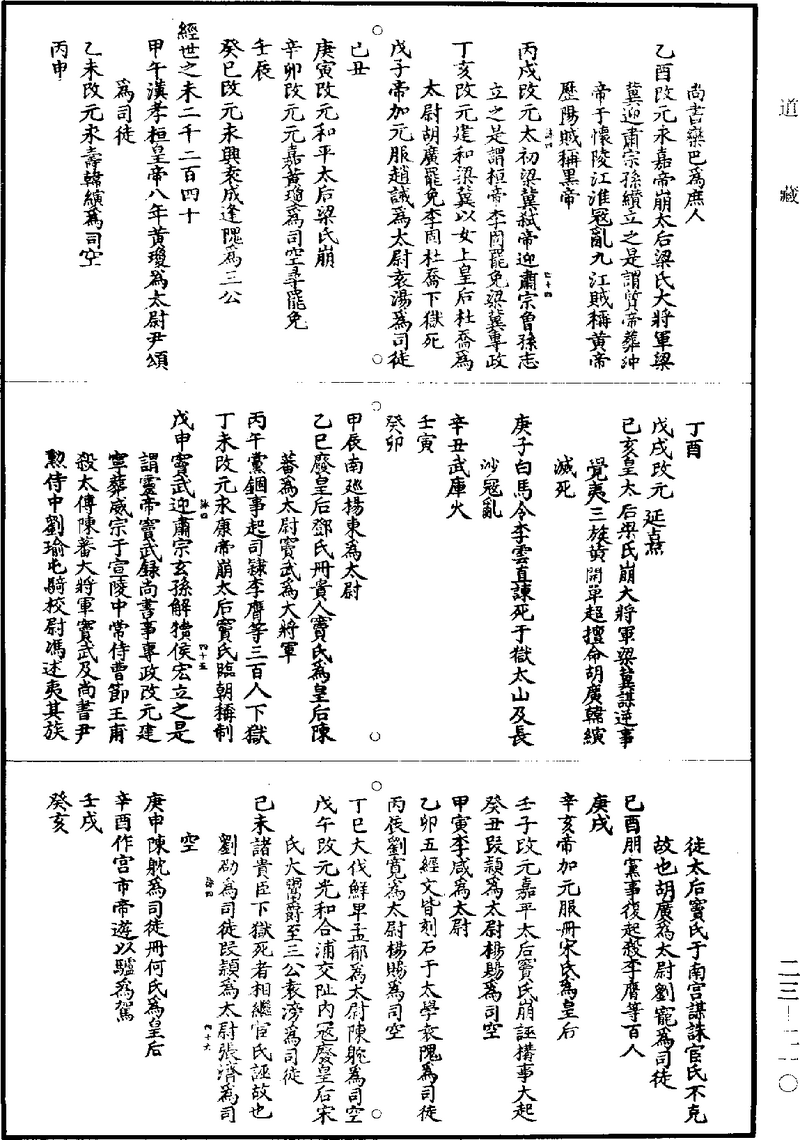 道藏
尚書欒巴為庶人
乙酉改元永嘉帝崩太后梁氏大將軍梁
冀迎肅宗孫纘立之是謂質帝葬紳
帝于懷陵江淮冦亂九江賊稱黃帝
歷陽賊稱黑帝
丙戌改元太初梁冀弒帝迎肅宗曾孫志
立之是謂桓帝李固罷免梁冀專政
丁亥改元建和梁冀以女上皇后杜喬為
太尉胡廣罷免李固杜喬下獄死
戊子帝加元服趙誡為太尉袁湯為司徒
己丑
庚寅改元和平太后梁氏崩
辛卯改元元嘉黃瓊為司空尋罷免
壬辰
癸巳改元永興袁成逢隗為三公
經世之未二千二百四十
甲午漢孝桓皇帝八年黃瓊為太尉尹頌
為司徒
乙未改元永壽韓縯為司空
丙申
丁酉
戊戌改元延熹
己亥皇太后梁氏崩大將軍梁冀謀逆事
覺夷三族黃開單超擅命胡廣韓縯
減死
庚子白馬令李雲直諫死于獄太山及長
沙冦亂
辛丑武庫火
壬寅
癸卯
甲辰南巡揚東為太尉
乙巳廢皇后鄧氏冊貴人竇氏為皇后陳
蕃為太尉竇武為大將軍
丙午黨錮事起司隸李膺等三百人下獄
丁未改元永康帝崩太后竇氏臨朝稱制
戊申竇武迎肅宗玄孫解犢侯宏立之是
謂靈帝竇武錄尚書事專政改元建
寧葬威宗于宣陵中常侍曹節王甫
殺太傅陳蕃大將軍竇武及尚書尹
勲侍中劉瑜屯騎校尉馮述夷其族
徒太后竇氏于南宮謀誅宦氏不克
故也胡廣為太尉劉寵為司徒
己酉朋黨事復起殺李膺等百人
庚戌
辛亥帝加元服冊宋氏為皇后
壬子改元嘉平太后竇氏崩誣搆事大起
癸丑段熲為太尉楊賜為司空
甲寅李咸為太尉
乙卯五經文皆刻石于太學袁隗為司徒
丙辰劉寬為太尉楊賜為司空
丁巳大伐鮮卑孟郁為太尉陳躭為司空
戊午改元光和合浦交阯內冦廢皇后宋
氏大鬻爵至三公袁滂為司徒
己未諸貴臣下獄死者相繼宦氏誣故也
劉郃為司徒段熲為太尉張濟為司
空
庚申陳躭為司徒冊何氏為皇后
辛酉作宮市帝遊以驢為駕
壬戌
癸亥
二三—二一〇